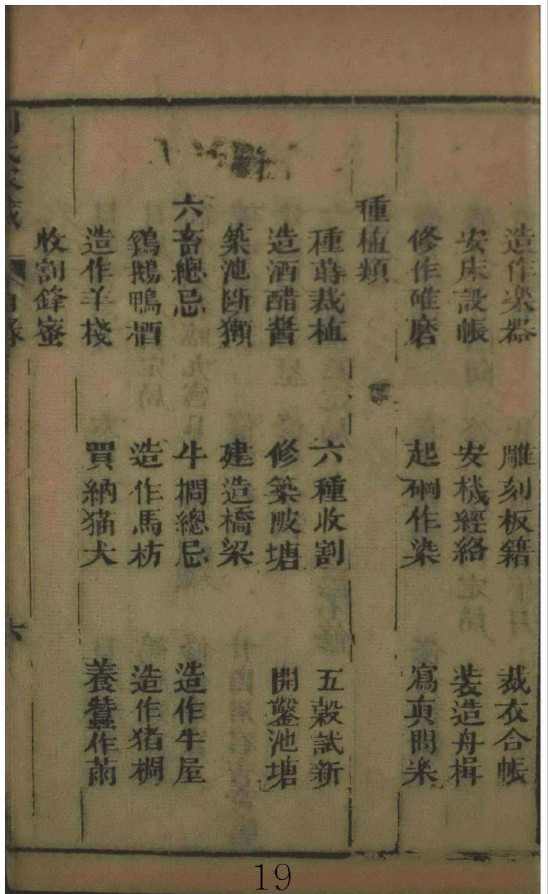 造作樂器 雕刻板籍 裁衣合帳
安床設帳 安機經絡 裝造舟楫
修作碓磨 起砌作染 寫真問樂
種植類
種蒔栽植 六種收割 五穀試新
造酒醋醬 修築陂塘 開鑿池塘
築池斷獺 建造橋梁
六畜總忌 牛榈總忌 造作牛屋
鷄鵝鴨栖 造作馬枋 造作猪榈
造作羊棧 買納猫犬 養蠶作繭
收割蜂蜜
目錄
六
19